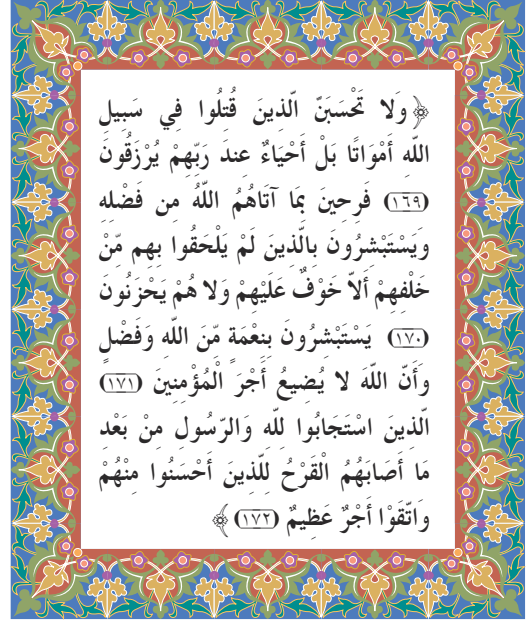 ﴿وَلا تَحْسَبَنّ الّذينَ قُتلُوا في سَبيل
اللّه أَمْوَاتًا بَلْ أَحْيَاءٌ عندَ رَبّهمْ يُرْزَقُونَ
(١٦٩) فَرحينَ بمَا آتَاهُمُ اللّهُ من فَضْله
وَيَسْتَبْشرُونَ بالّذينَ لَمْ يَلْحَقُوا بهم مّنْ
خَلْفهمْ أَلاّ خَوْفٌ عَلَيْهمْ وَلا هُمْ يَحْزَنُونَ
(١٧٠) يَسْتَبْشرُونَ بنعْمَة مّنَ اللّه وَفَضْل
وَأَنّ اللّهَ لا يُضيعُ أَجْرَ الْمُؤْمنينَ (١٧١)
الّذينَ اسْتَجَابُوا للّه وَالرّسُول منْ بَعْد
مَا أَصَابَهُمُ الْقَرْحُ للّذينَ أَحْسَنُوا منْهُمْ
وَاتّقَوْا أَجْرٌ عَظيمٌ (١٧٢)﴾